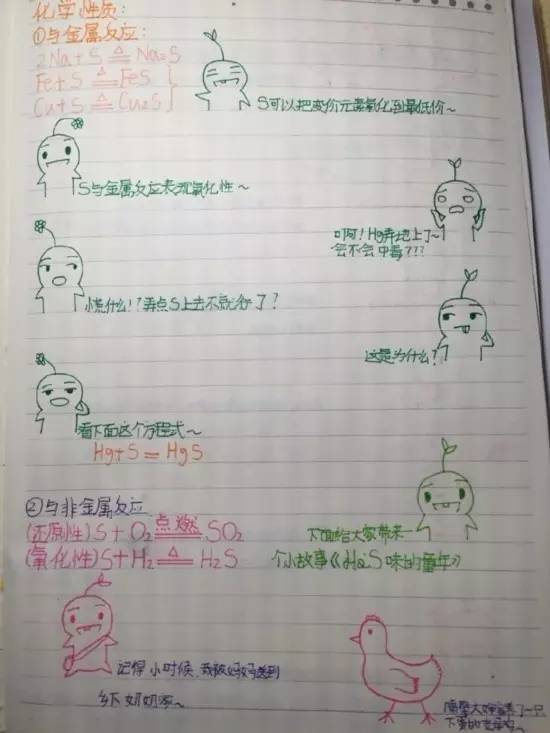 化学性质:
①与金属反应:
2Na+S △ Na2S
Fe+S △ FeS
Cu+S △ Cu2S
S可以把变价元素氧化到最低价~
S与金属反应表现氧化性~
啊!Hg弄地上了~
会不会中毒???
小慌什么!?弄点S上去不就行了?
这是为什么?
看下面这个方程式~
Hg+S=HgS
②与非金属反应
(还原性)S+O2 点燃 SO2
(氧化性)S+H2 △ H2S
下面给大家带来一
个小故事《H2S味的童年》
记得小时候,我被妈妈送到
乡下奶奶家~
隔壁大婶家养了一只
下蛋的老母鸡~